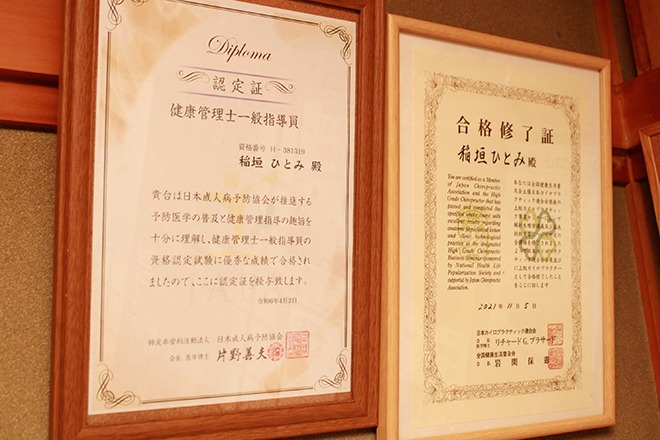 Diploma
認定証
健康管理士一般指導員
資格番号 H-381319
稲垣 ひとみ 殿
貴台は日本成人病予防協会が推進する
予防医学の普及と健康管理指導の趣旨を
十分に理解し、健康管理士一般指導員の
資格認定試験に優秀な成績で合格され
ましたので、ここに認定証を授与致します。
令和6年4月2日
特定非営利活動法人 日本成人病予防協会
会長 医学博士 片野善夫
合格修了証
稲垣ひとみ 殿
You are certified as a Member
of Japan Chiropractic
Association and the High
Grade Chiropractor that has
passed and completed the
excellent results regarding
and clinic technological
practice at the designated
High Grade Chiropractic
Business Seminar sponsored
by National Health Life
Popularization Society and
supported by Japan Chiropractic
Association.
2021年 11月 5日
日本カイロプラクティック連合会
会長
医学博士 リチャードG.ブラサード
全国健康生活普及会
会長 岩間保